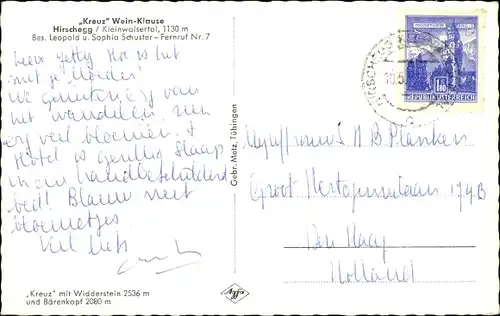 „Kreuz" Wein-Klause
Hirschegg / Kleinwalsertal, 1130 m
Bes. Leopold u. Sophia Schuster - Fernruf Nr. 7
Lieve Jetty Hoe is het
met je
We genieten erg van
het wandelen, zien
erg veel bloemen. +
Hotel is gezellig slaap
in een handbeschilderd
bed! Blauw met
bloemetjes.
Veel liefs
Gebr. Metz, Tübingen
REPUBLIK ÖSTERREICH
1.80
HIRSCHEGG
10.5
A B Planken
Groot Hertoginnelaan 174B
Den Haag
Holland
Agfa
„Kreuz" mit Widderstein 2536 m
und Bärenkopf 2080 m